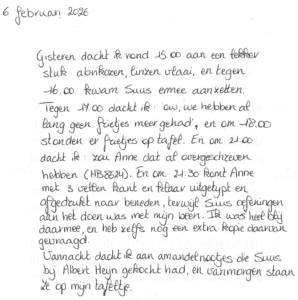 6 februari 2026
Gisteren dacht ik rond 15.00 aan een lekker
stuk abrikozen, linzen vlaai, en tegen
16.00 kwam Suus ermee aanzetten.
Tegen 17.00 dacht ik: ow, we hebben al
lang geen frietjes meer gehad, en om 18.00
stonden er frietjes op tafel. En om 21.00
dacht ik: zou Anne dat al overgeschreven
hebben (HB8824). En om 21.30 komt Anne
met 3 vellen kant en klaar uitgetypt en
afgedrukt naar beneden, terwijl Suus oefeningen
aan het doen was met mijn been. Ik was heel blij
daarmee, en heb zelfs nog een extra kopie daarvan
gevraagd.
Vannacht dacht ik aan amandelnootjes die Suus
bij Albert Heijn gekocht had, en vanmorgen staan
ze op mijn tafeltje.